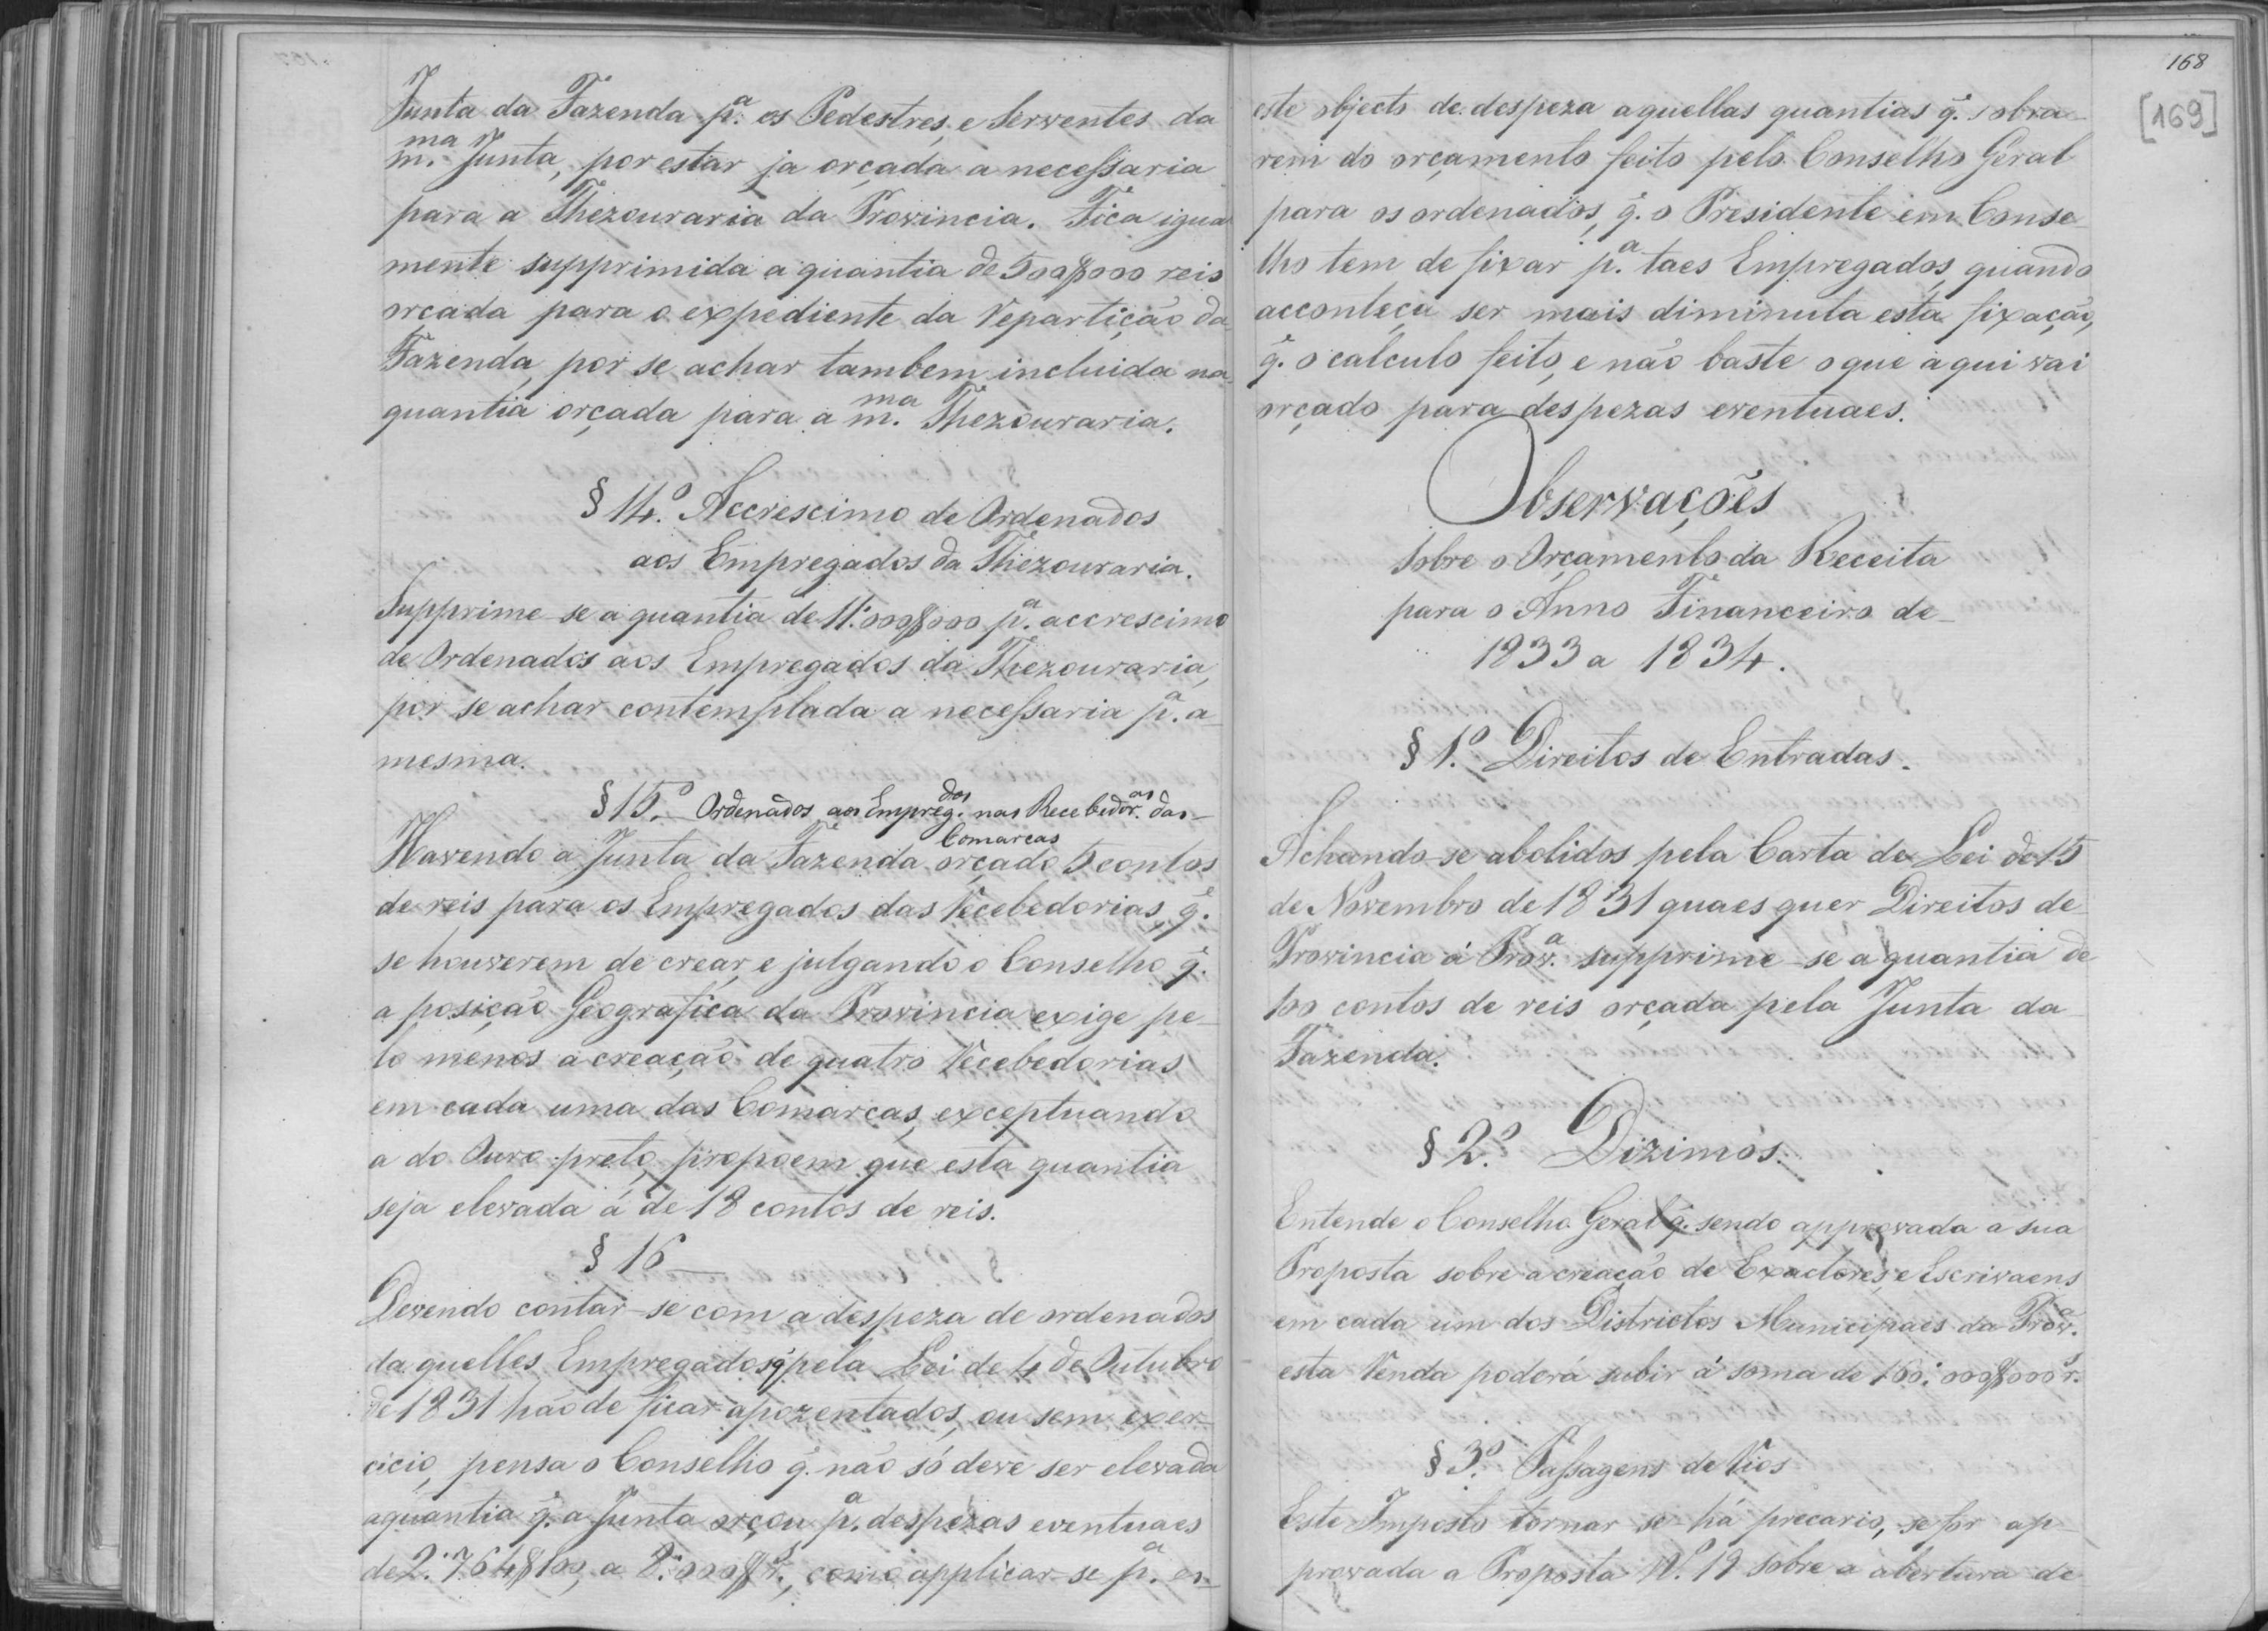 Junta da Fazenda p.ª os Pedestres, e Serventes da
m.ma Junta, por estar ja orçada a necessaria
para a Thezouraria da Provincia. Fica igual
mente supprimida a quantia de 500$000 reis
orcada para o expediente da Repartição da
Fazenda, por se achar tambem incluida na
quantia orçada para a m.ma Thezouraria.
§ 14.º Accrescimo de Ordenados
aos Empregados da Thezouraria.
Supprime-se a quantia de 11:000$000 p.ª accrescimo
de Ordenados aos Empregados da Thezouraria,
por se achar contemplada a necessaria p.ª a
mesma.
§ 15.º Ordenados aos Empreg.dos nas Recebedor.as das
Comarcas
Havendo a Junta da Fazenda orçado 5 contos
de reis para os Empregados das Recebedorias, q̃.
se houverem de crear, e julgando o Conselho q̃.
a posição Geografica da Provincia exige pe-
lo menos a creação de quatro Recebedorias
em cada uma das Comarcas, exceptuando
a do Ouro-preto, propoem que esta quantia
seja elevada á de 18 contos de reis.
§ 16
Devendo contar-se com a despeza de ordenados
da quelles Empregados q̃ pela Lei de 4 de Outubro
de 1831 hão de ficar apozentados, ou sem exer-
cicio, pensa o Conselho q̃. não só deve ser elevada
a quantia q̃. a Junta orçou p.ª despezas eventuaes
de 2:764$100, a 8:000$r.s, como applicar-se p.ª es-
168
[169]
este objecto de despeza aquellas quantias q̃. sobra-
rem do orçamento feito pelo Conselho Geral
para os ordenados, q̃. o Presidente em Conse-
lho tem de fixar p.ª taes Empregados, quando
acconteça ser mais diminuta esta fixação,
q̃. o calculo feito, e não baste o que aqui vai
orçado para despezas eventuaes.
Observações
sobre o Orçamento da Receita
para o Anno Financeiro de
1833 a 1834.
§ 1.º Direitos de Entradas.
Achando-se abolidos pela Carta de Lei de 15
de Novembro de 1831 quaes quer Direitos de
Provincia á Prov.ª supprime-se a quantia de
100 contos de reis orçada pela Junta da
Fazenda.
§ 2.º Dizimos.
Entende o Conselho Geral q̃. sendo approvada a sua
Proposta sobre a creação de Exactores, e Escrivaens
em cada um dos Districtos Municipaes da Prov.ª
esta Renda poderá subir á soma de 160:000$000 r.s
§ 3.º Passagens de Rios
Este Imposto tornar-se-há precario, se for ap-
provada a Proposta N.º 19 sobre a abertura de